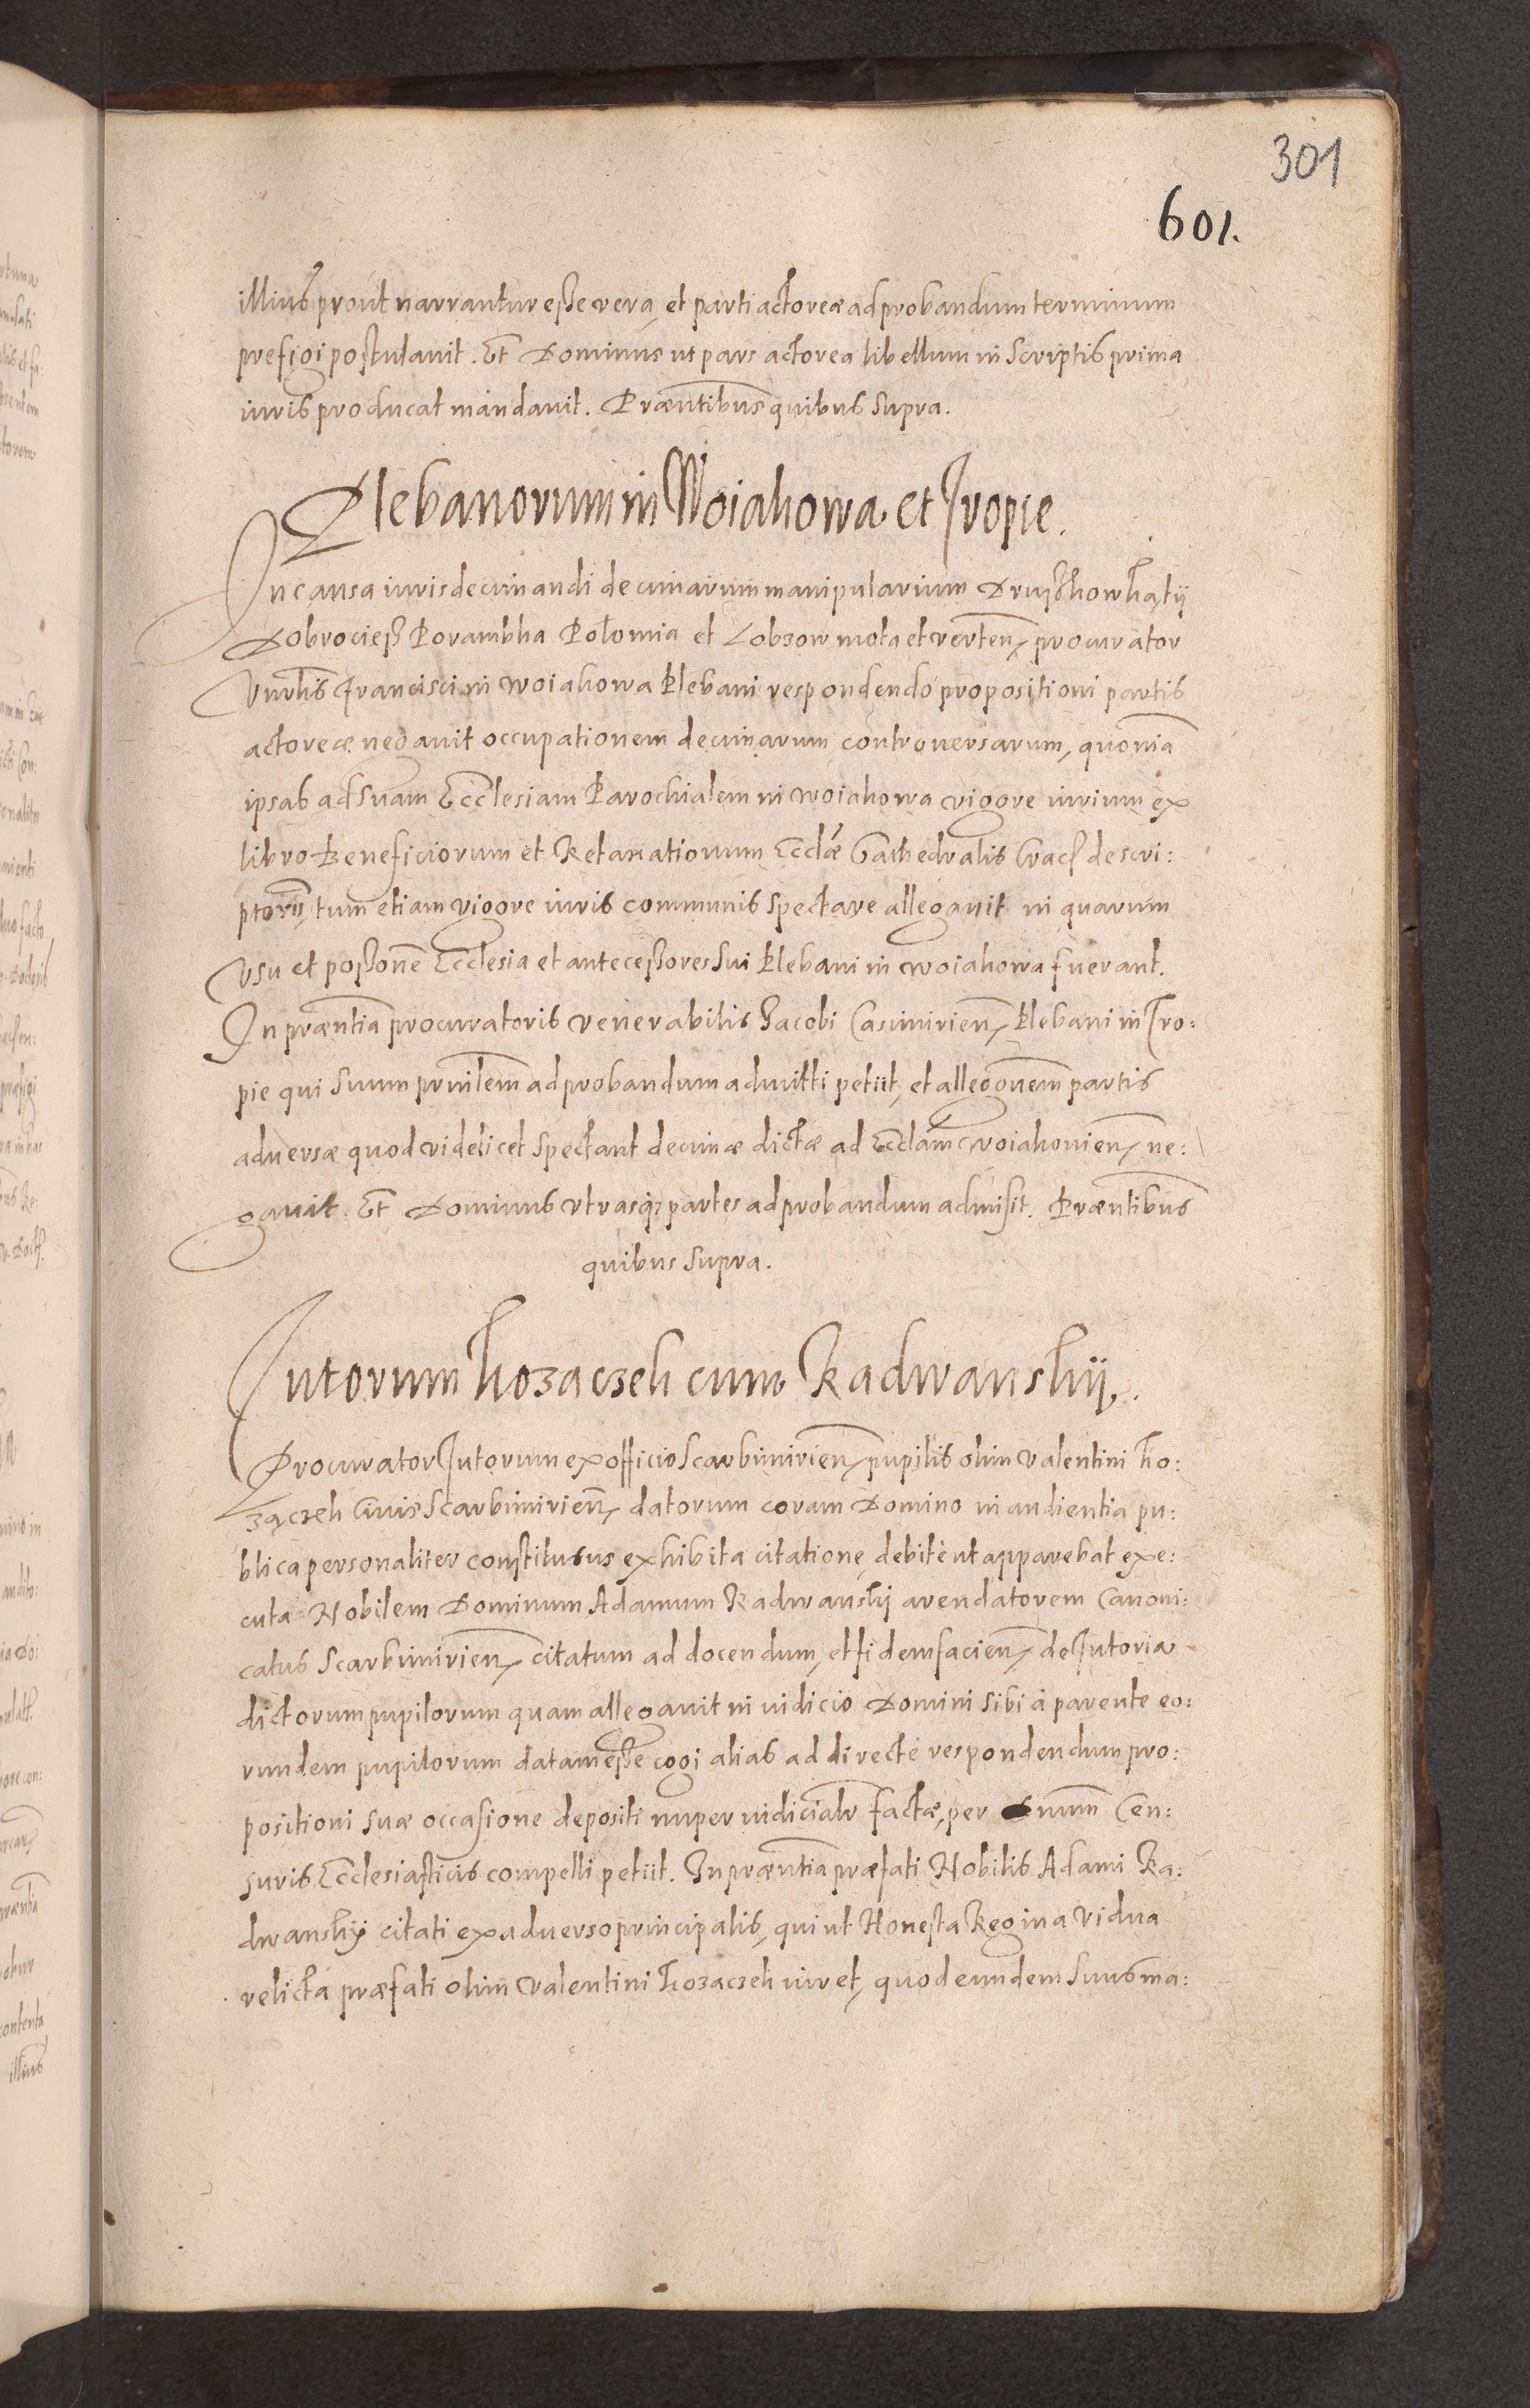 301
601.
illius prout narrantur esse vera, et parti actoreæ ad probandum terminum
prefigi postulavit. Et Dominus ut pars actorea libellum in scriptis prima
iuris producat mandavit. Præntibus quibus supra.
Plebanorum in Woiakowa et Tropie.
In causa iuris decimandi decimarum manipularium
Dobrociesz Porambka Polomia et Lobzow mota et verten, procurator
Vnrlis Francisci in Woiakowa Plebani respondendo propositioni partis
actoreæ negavit occupationem decimarum controversarum, quoniã
ipsas ad suam Ecclesiam Parochialem in Woiakowa vigore iurium ex
libro Beneficiorum et Retaxationum Eccłæ Cathedralis Crac descri:
ptorũ, tum etiam vigore iuris communis spectare allegavit in quarum
Vsu et possonẽ Ecclesia et antecessores sui Plebani in Woiakowa fuerant.
In præntia procuratoris venerabilis Jacobi Casimirien, Plebani in Tro:
pie qui suum privilem ad probandum admitti petiit, et allegonem partis
adversæ quod videlicet spectant decimæ dictæ ad Ecclam Woiakovien, ne:
gavit. Et Dominus utrasq; partes ad probandum admisit. Præntibus
quibus supra.
Tutorum Kozaczek cum Radwanskij.
Procurator Tutorum ex officio Scarbimirien, pupilis olim Valentini Ko:
zączek Civis Scarbimirien, datorum coram Domino in audientia pu:
blica personaliter constitutus exhibita citatione, debitè ut apparebat exe:
cuta Nobilem Dominum Adamum Radwanskij arendatorem Canoni:
catus Scarbimirien, citatum ad docendum, et fidem facien, de Tutoria
dictorum pupilorum quam allegavit in iudicio Domini sibi à parente eo:
rundem pupilorum datam esse cogi alias ad directè respondendum pro:
positioni suæ occasione depositi nuper iudicialr factæ, per Dnum Cen:
suris Ecclesiasticis compelli petiit. In præntia præfati Nobilis Adami Ra:
dwanskij citati ex adverso principalis, qui ut Honesta Regina Vidua
relicta præfati olim Valentini Kozaczek iuret, quod eundem suus ma: